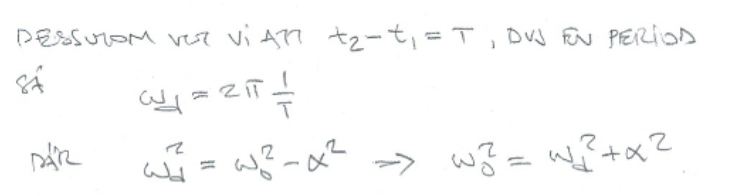 DESSUTOM VET VI ATT t₂-t₁ = T, DVS EN PERIOD
SÅ
ω_d = 2π 1/T
DÄR ω_d² = ω₀² - α² => ω₀² = ω_d² + α²